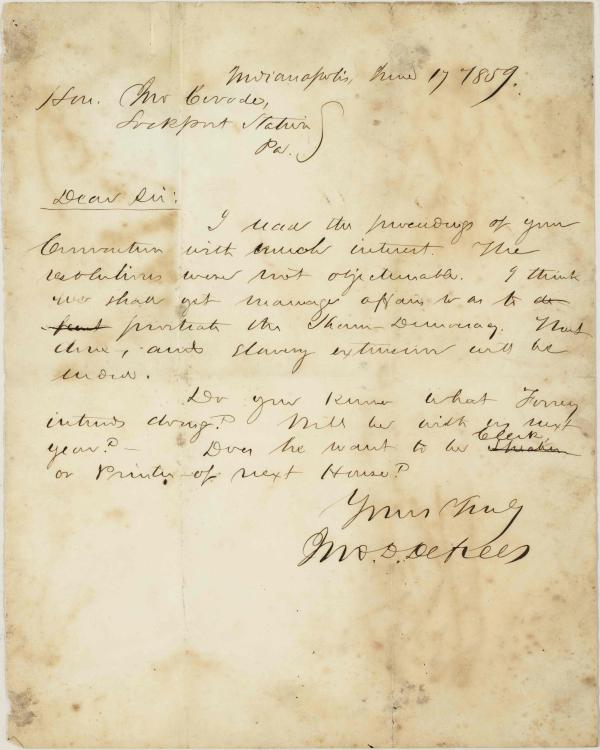 Indianapolis, June 17 1859.
Hon. Jno Covode,
Lockport Station
Pa.
Dear Sir:
I read the proceedings of your
Convention with much interest. The
resolutions were not objectionable. I think
we shall yet manage affairs so as to de
feat prostrate the Sham-Democracy. That
done, and slavery extension will be
ended.
Do you know what Forney
intends doing? Will he with us next
year? - Does he want to be Clerk Speaker
or Printer of next House?
Yours Truly
Jno. D. Defrees